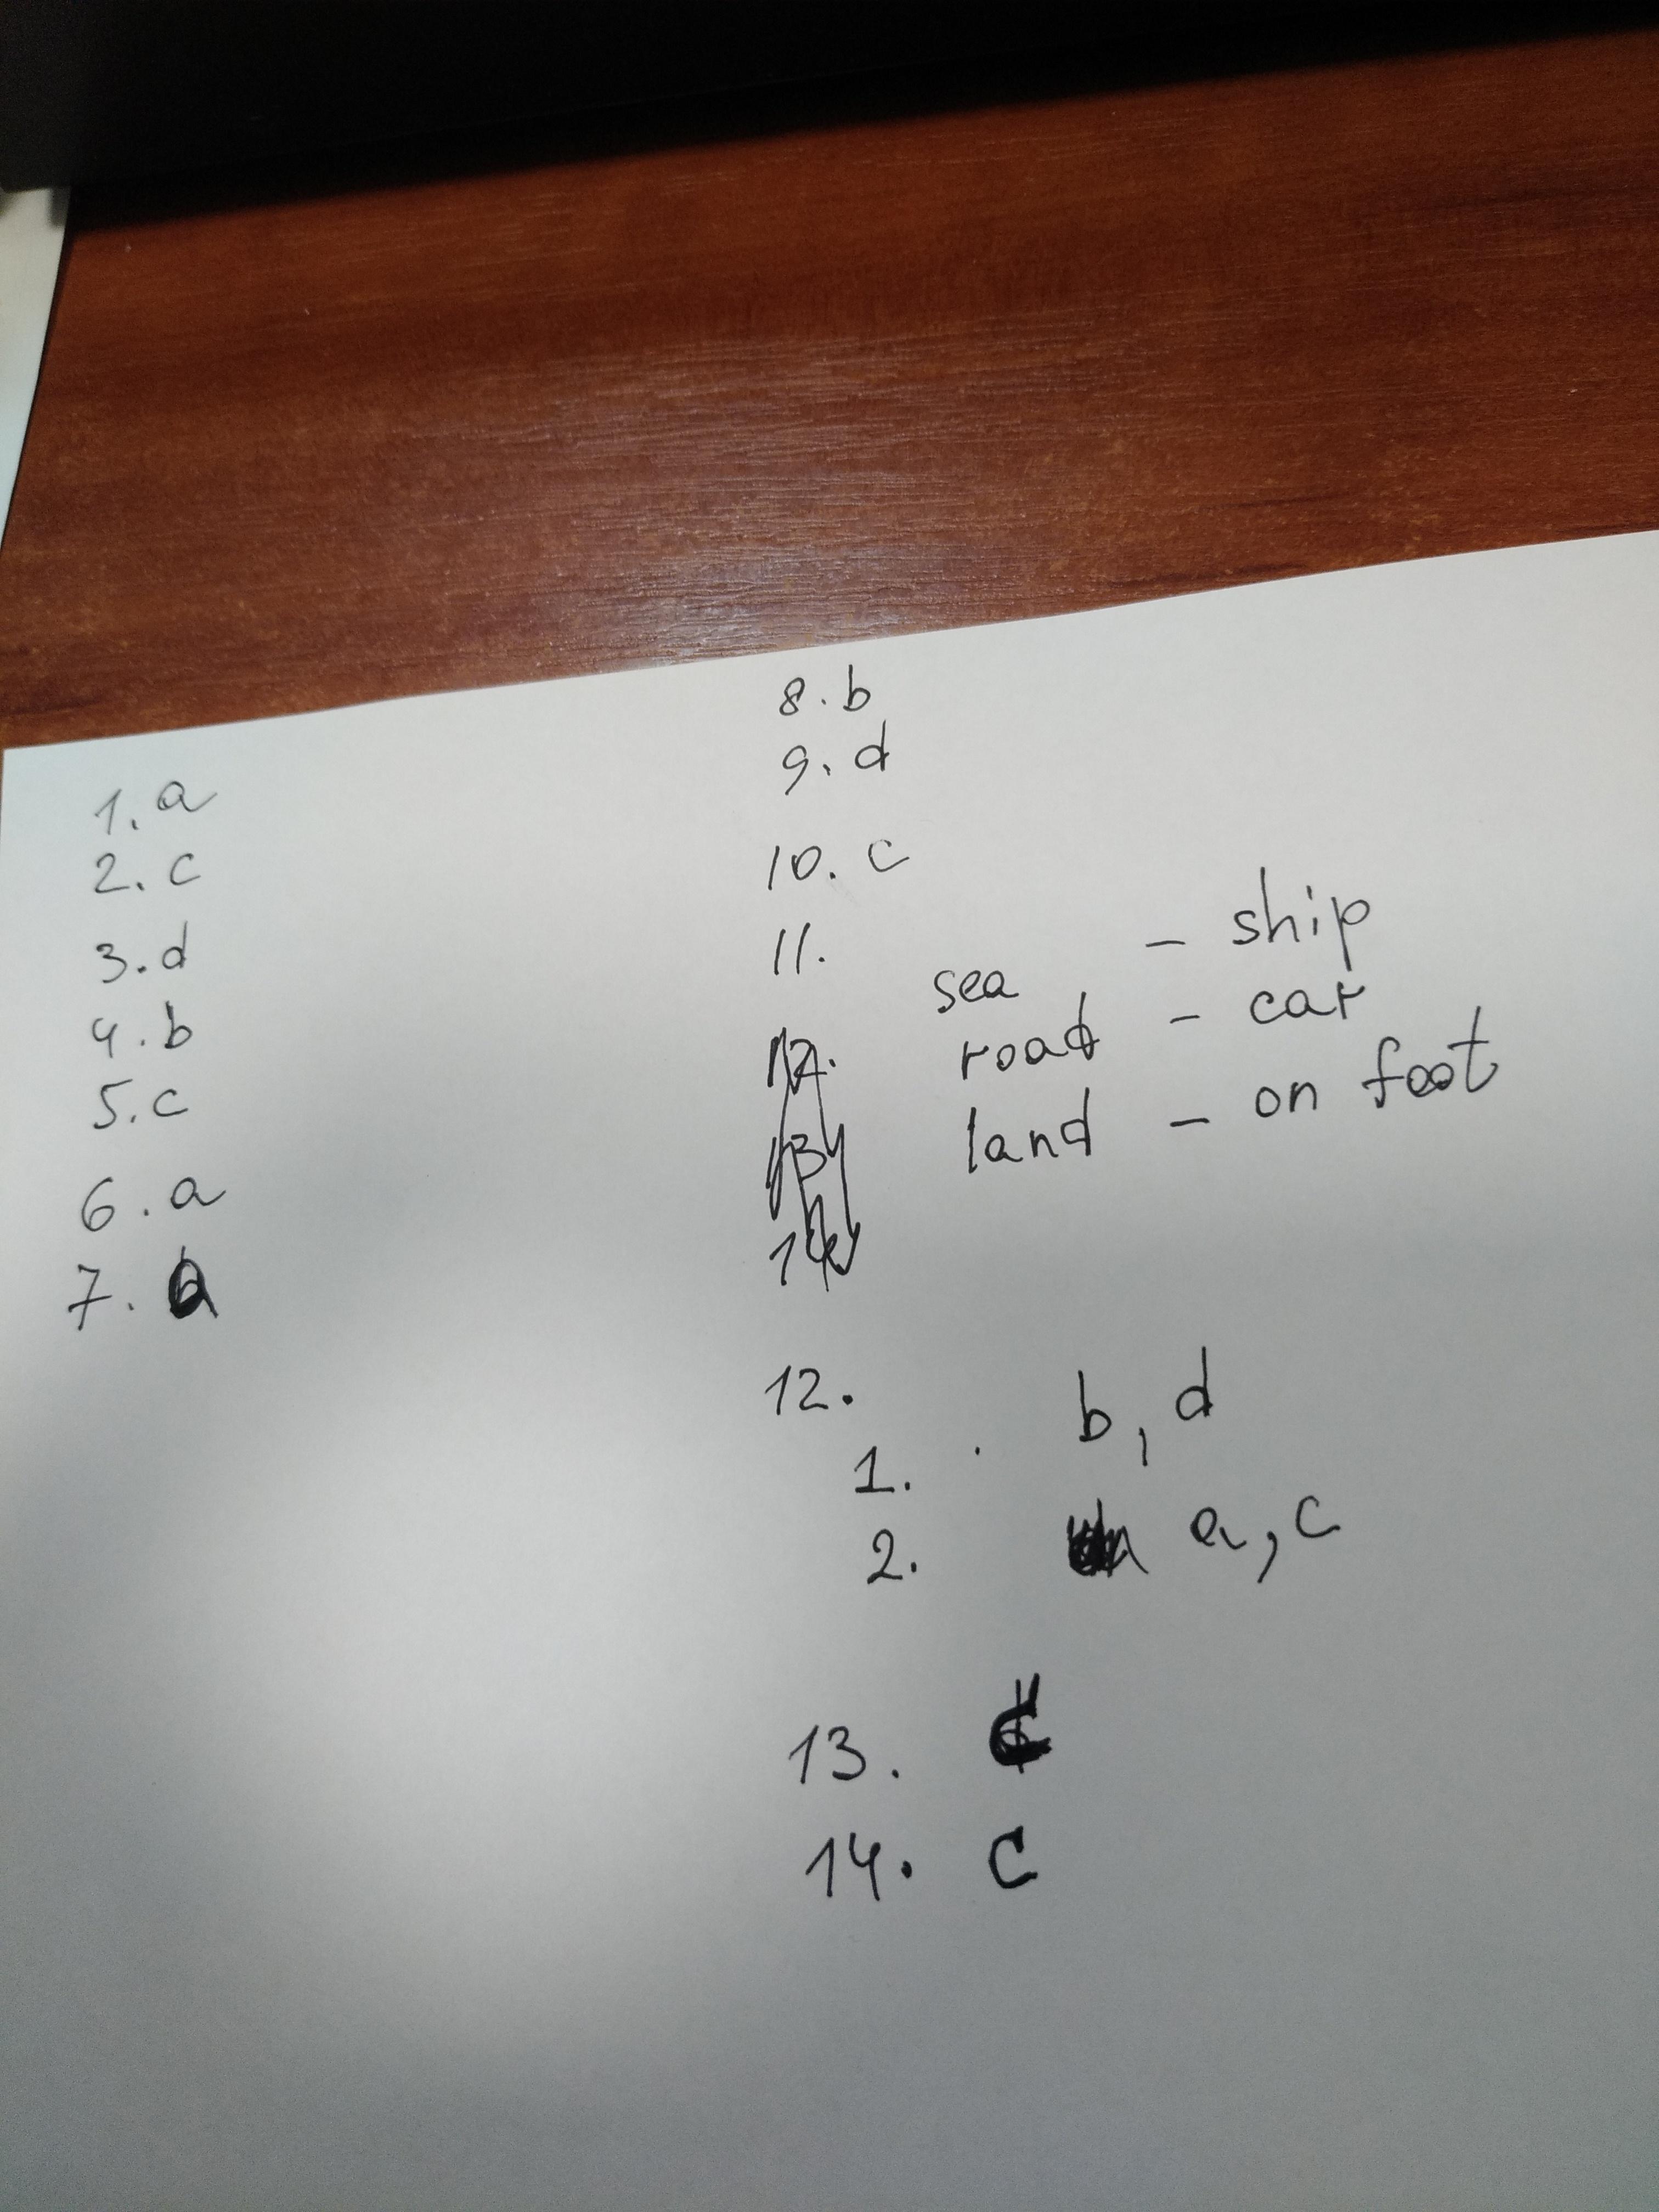 1. a
2. c
3. d
4. b
5. c
6. a
7. a
8. b
9. d
10. c
11.
sea - ship
road - car
land - on foot
12.
1. b, d
2. a, c
13. c
14. c